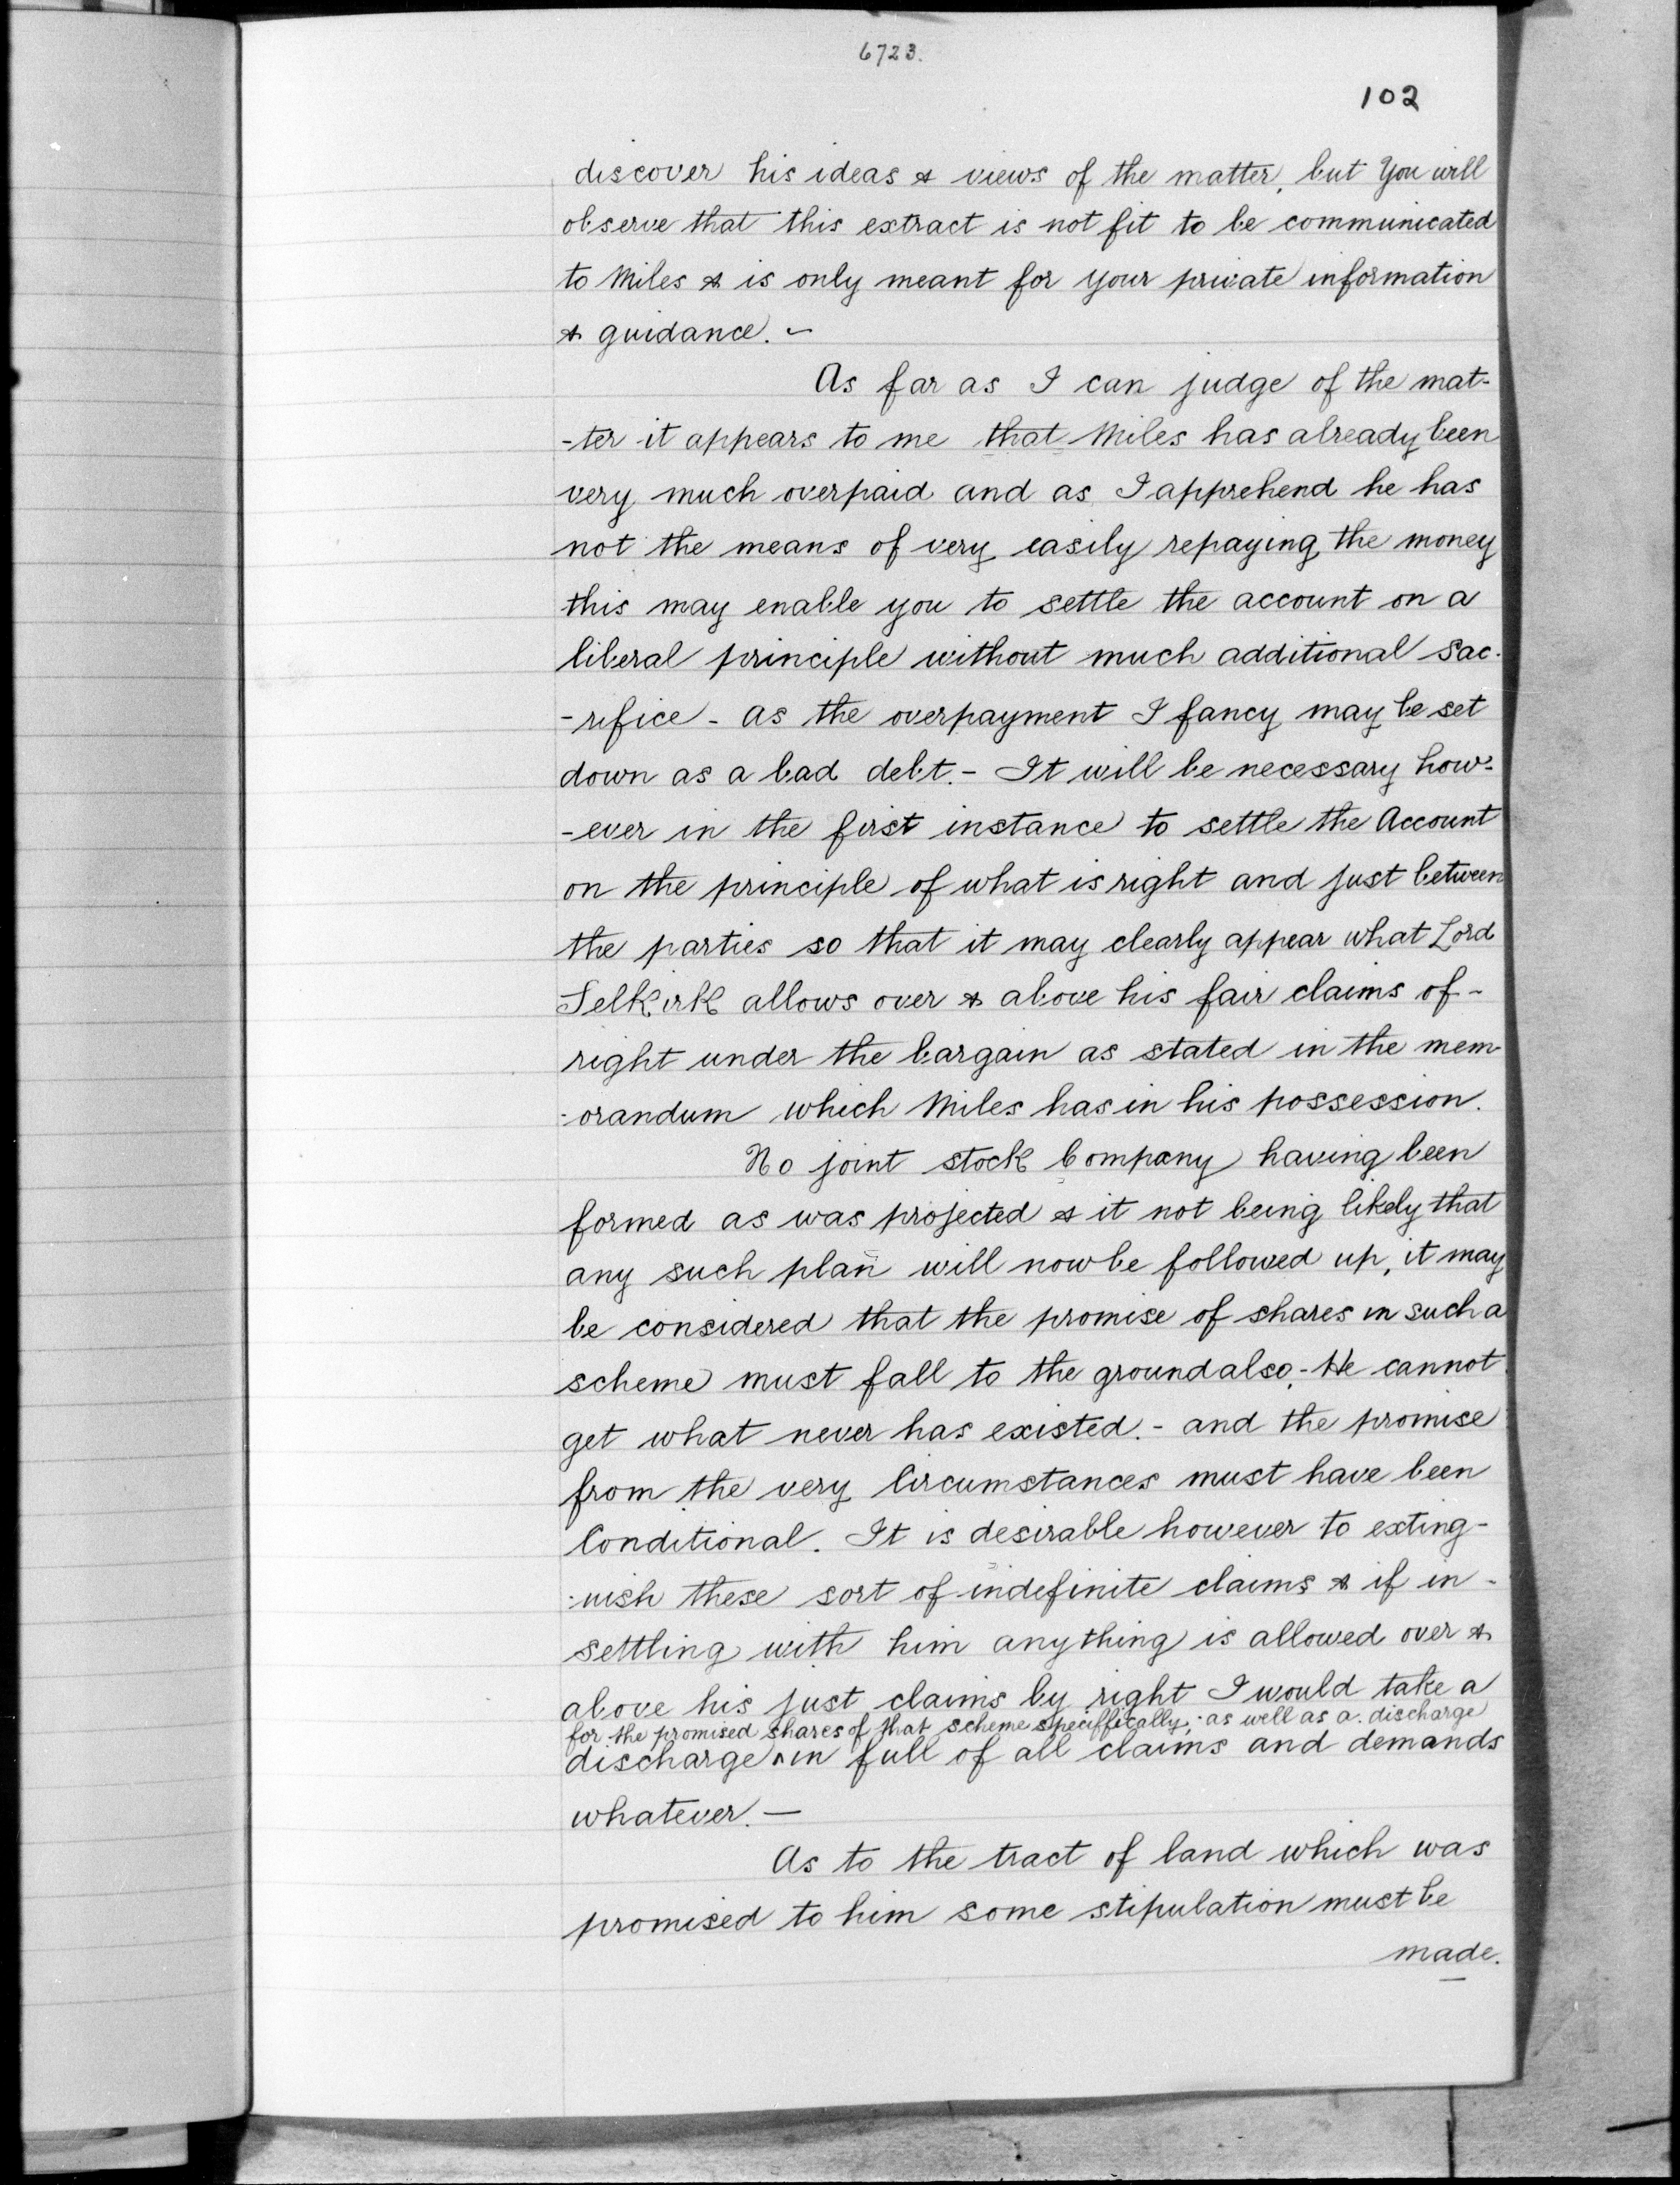 6723.
102
discover his ideas & views of the matter, but You will
observe that this extract is not fit to be communicated
to Miles & is only meant for your private information
& guidance. -
As far as I can judge of the mat-
-ter it appears to me that Miles has already been
very much overpaid and as I apprehend he has
not the means of very easily repaying the money
this may enable you to settle the account on a
liberal principle without much additional sac-
-rifice - as the overpayment I fancy may be set
down as a bad debt. - It will be necessary how-
-ever in the first instance to settle the Account
on the principle of what is right and just between
the parties so that it may clearly appear what Lord
Selkirk allows over & above his fair claims of -
right under the bargain as stated in the mem-
-orandum which Miles has in his possession.
No joint stock Company having been
formed as was projected & it not being likely that
any such plan will now be followed up, it may
be considered that the promise of shares in such a
scheme must fall to the ground also. - He cannot
get what never has existed. - and the promise
from the very Circumstances must have been
Conditional. It is desirable however to exting-
-uish these sort of indefinite claims & if in -
settling with him anything is allowed over &
above his just claims by right I would take a
for the promised shares of that scheme speciffically, as well as a discharge
discharge ^ in full of all claims and demands
whatever. —
As to the tract of land which was
promised to him some stipulation must be
made.